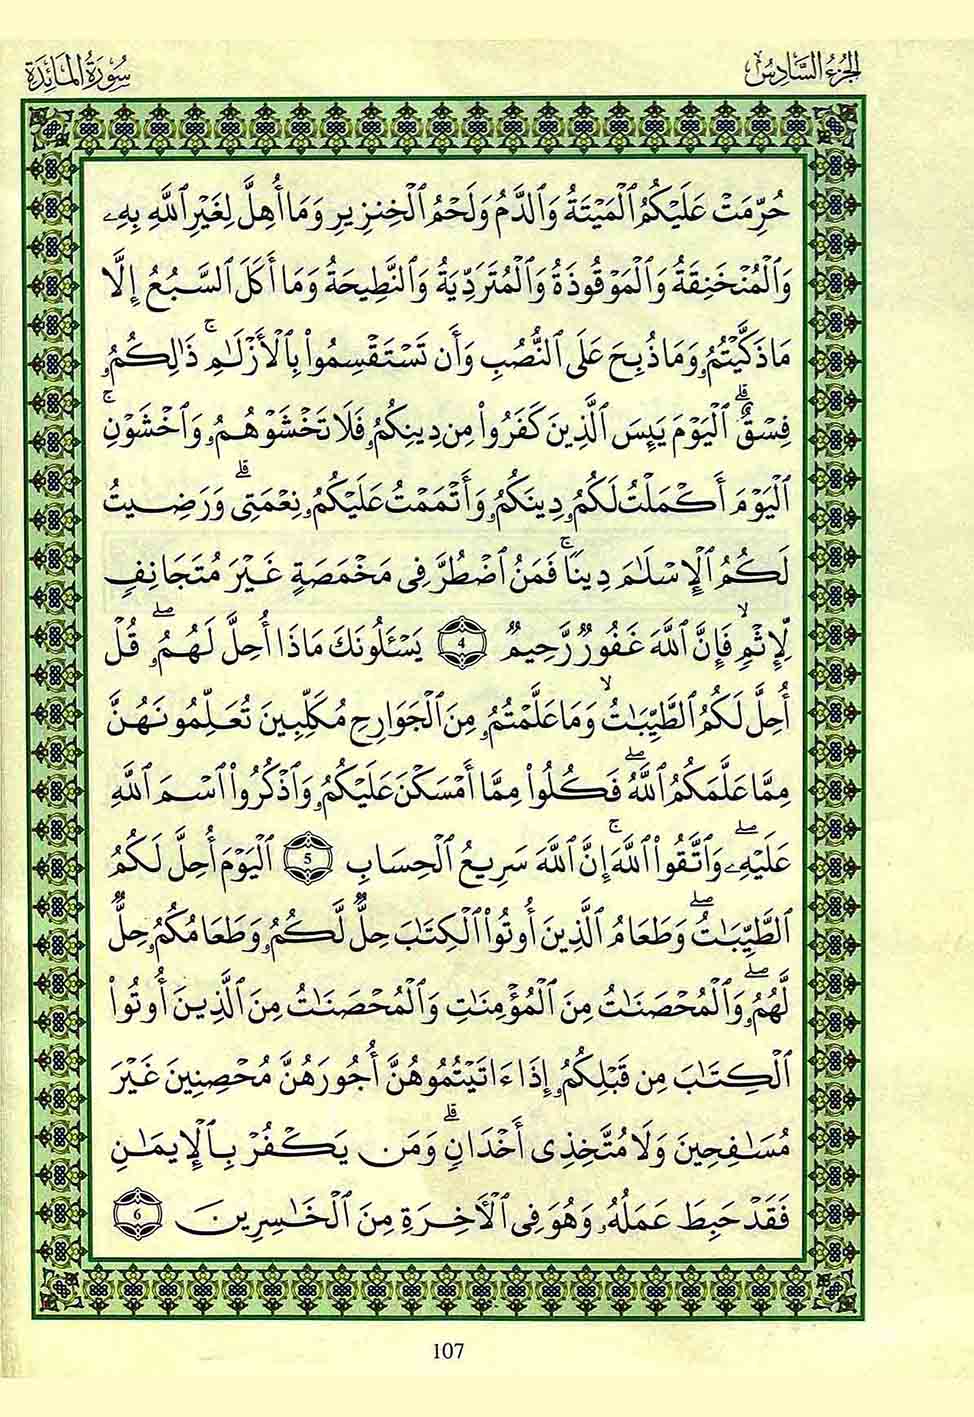 الجزء السادس
سورة المائدة
حُرِّمَتْ عَلَيْكُمُ ٱلْمَيْتَةُ وَٱلدَّمُ وَلَحْمُ ٱلْخِنزِيرِ وَمَا أُهِلَّ لِغَيْرِ ٱللَّهِ بِهِۦ
وَٱلْمُنْخَنِقَةُ وَٱلْمَوْقُوذَةُ وَٱلْمُتَرَدِّيَةُ وَٱلنَّطِيحَةُ وَمَا أَكَلَ ٱلسَّبُعُ إِلَّا
مَا ذَكَّيْتُمُۥ وَمَا ذُبِحَ عَلَى ٱلنُّصُبِ وَأَن تَسْتَقْسِمُوا۟ بِٱلْأَزْلَٰمِ ۚ ذَٰلِكُمُۥ
فِسْقٌ ۗ ٱلْيَوْمَ يَئِسَ ٱلَّذِينَ كَفَرُوا۟ مِن دِينِكُمُۥ فَلَا تَخْشَوْهُمُۥ وَٱخْشَوْنِ ۚ
ٱلْيَوْمَ أَكْمَلْتُ لَكُمُۥ دِينَكُمُۥ وَأَتْمَمْتُ عَلَيْكُمُۥ نِعْمَتِى ۗ وَرَضِيتُ
لَكُمُ ٱلْإِسْلَٰمَ دِينًا ۚ فَمَنُ ٱضْطُرَّ فِى مَخْمَصَةٍ غَيْرَ مُتَجَانِفٍ
لِّإِثْمٍ ۙ فَإِنَّ ٱللَّهَ غَفُورٌ رَّحِيمٌ 4 يَسْـَٔلُونَكَ مَاذَا أُحِلَّ لَهُمُۥ ۖ قُلْ
أُحِلَّ لَكُمُ ٱلطَّيِّبَٰتُ ۙ وَمَا عَلَّمْتُمُۥ مِنَ ٱلْجَوَارِحِ مُكَلِّبِينَ تُعَلِّمُونَهُنَّ
مِمَّا عَلَّمَكُمُ ٱللَّهُ ۖ فَكُلُوا۟ مِمَّا أَمْسَكْنَ عَلَيْكُمُۥ وَٱذْكُرُوا۟ ٱسْمَ ٱللَّهِ
عَلَيْهِۦ ۖ وَٱتَّقُوا۟ ٱللَّهَ ۚ إِنَّ ٱللَّهَ سَرِيعُ ٱلْحِسَابِ 5 ٱلْيَوْمَ أُحِلَّ لَكُمُ
ٱلطَّيِّبَٰتُ ۖ وَطَعَامُ ٱلَّذِينَ أُوتُوا۟ ٱلْكِتَٰبَ حِلٌّ لَّكُمُۥ وَطَعَامُكُمُۥ حِلٌّ
لَّهُمُۥ ۖ وَٱلْمُحْصَنَٰتُ مِنَ ٱلْمُؤْمِنَٰتِ وَٱلْمُحْصَنَٰتُ مِنَ ٱلَّذِينَ أُوتُوا۟
ٱلْكِتَٰبَ مِن قَبْلِكُمُۥ إِذَا ءَاتَيْتُمُوهُنَّ أُجُورَهُنَّ مُحْصِنِينَ غَيْرَ
مُسَٰفِحِينَ وَلَا مُتَّخِذِى أَخْدَانٍ ۗ وَمَن يَكْفُرْ بِٱلْإِيمَٰنِ
فَقَدْ حَبِطَ عَمَلُهُۥ وَهُوَ فِى ٱلْأَخِرَةِ مِنَ ٱلْخَٰسِرِينَ 6
107